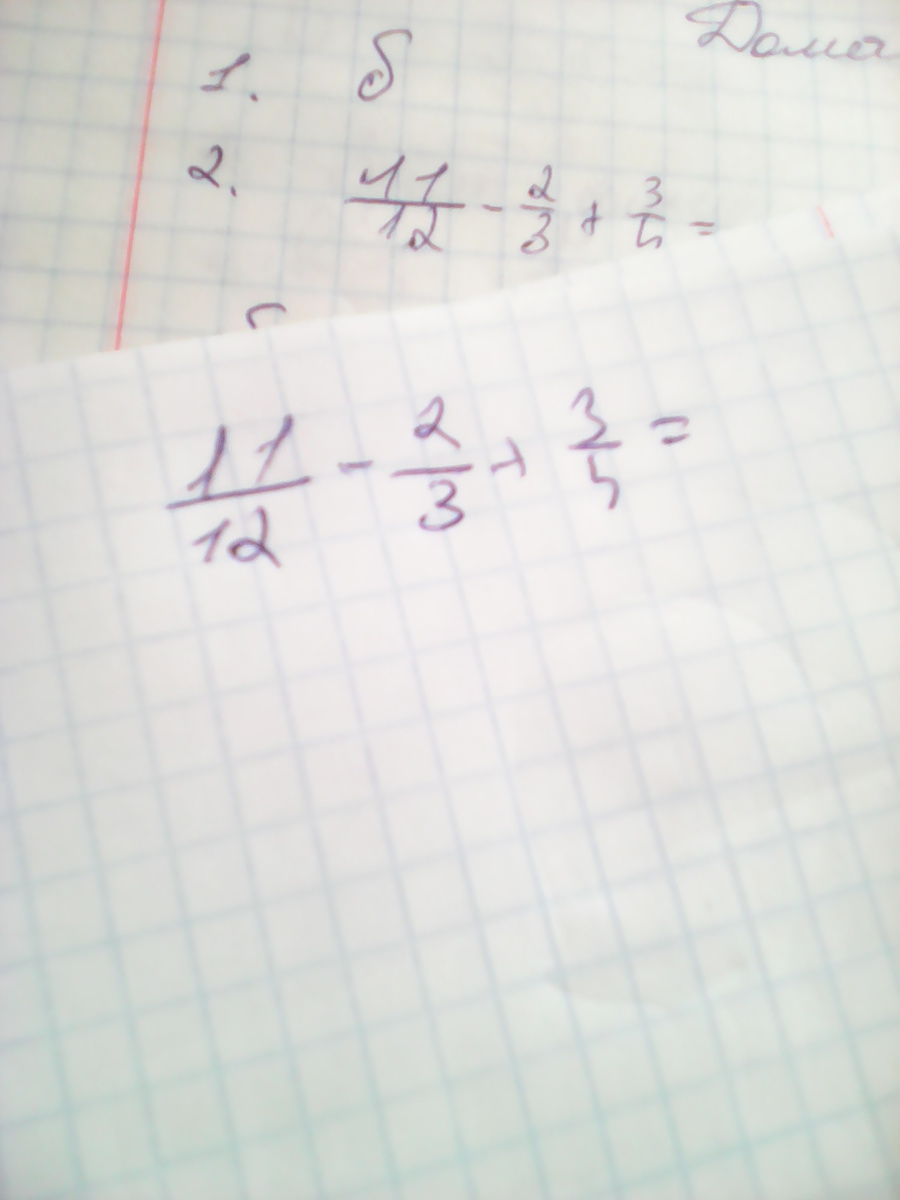 Дома
1. б
2. 11/12 - 2/3 + 3/5 =
11/12 - 2/3 + 3/5 =